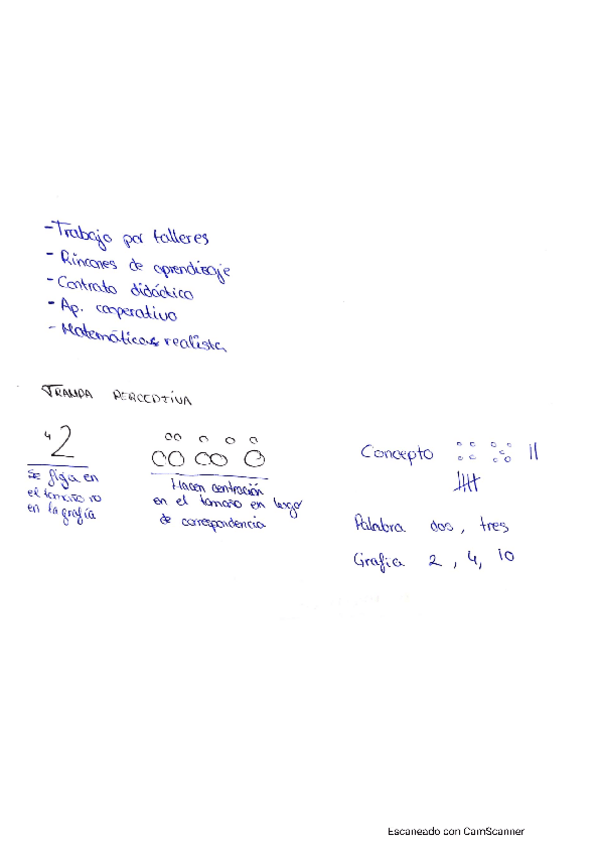 - Trabajo por talleres
- Rincones de aprendizaje
- Contrato didáctico
- Ap. cooperativo
- Matemáticas realista
TRAMPA PERCEPTIVA
4 2
Se fija en
el tamaño no
en la grafía
Hacen centración
en el tamaño en lugar
de correspondencia
Concepto
Palabra dos, tres
Grafía 2, 4, 10
Escaneado con CamScanner